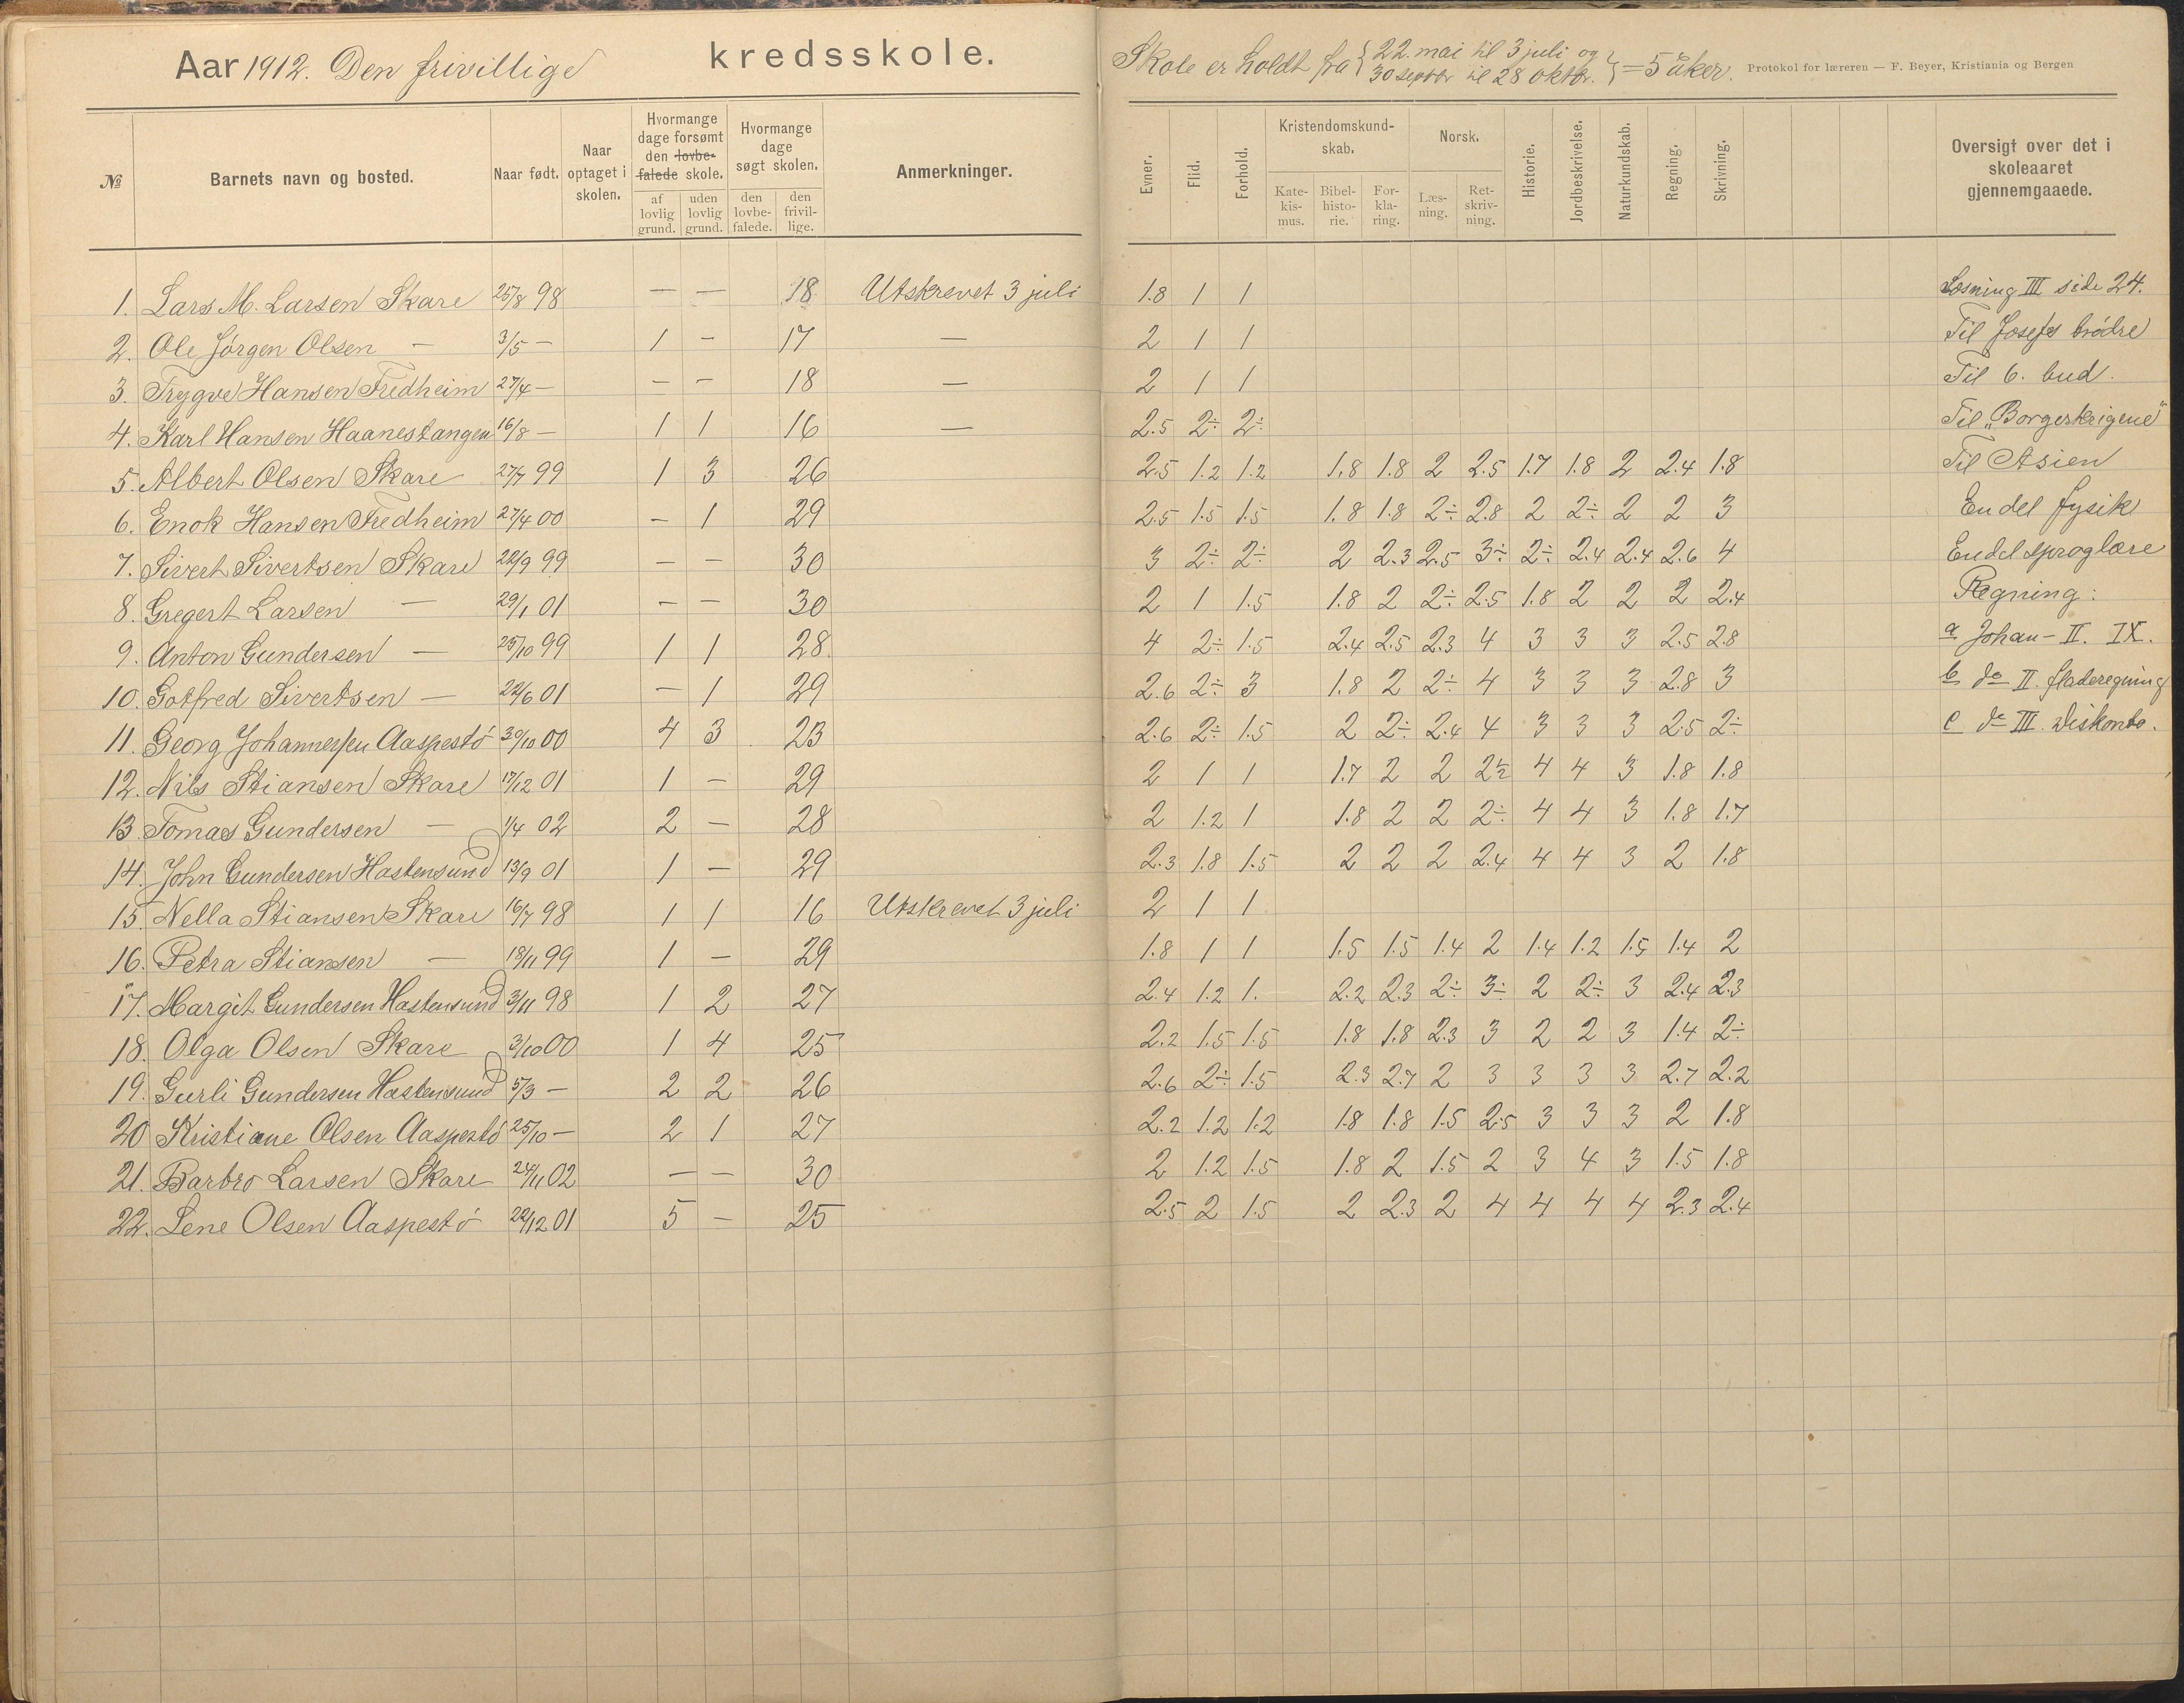 Aar 1912. Den frivillige kredsskole.
Skole er holdt fra { 22. mai til 3 juli og
30 septbr til 28 oktbr. } = 5 uker. Protokol for læreren — F. Beyer, Kristiania og Bergen
№ Barnets navn og bosted. Naar født. Naar optaget i skolen. Hvormange dage forsømt den lovbefalede skole. af lovlig grund. uden lovlig grund. Hvormange dage søgt skolen. den lovbefalede. den frivillige. Anmerkninger.
Evner. Flid. Forhold. Kristendomskundskab. Katekismus. Bibelhistorie. Forklaring. Norsk. Læsning. Retskrivning. Historie. Jordbeskrivelse. Naturkundskab. Regning. Skrivning. Oversigt over det i skoleaaret gjennemgaaede.
1. Lars M. Larsen Skare 25/8 98 — — 18 Utskrevet 3 juli 1.8 1 1 Læsning III side 24.
2. Ole Jørgen Olsen — 3/5 — 1 — 17 — 2 1 1 Til Josefs brødre
3. Trygve Hansen Fredheim 27/4 — — — 18 — 2 1 1 Til 6. bud.
4. Karl Hansen Haanestangen 16/8 — 1 1 16 — 2.5 2÷ 2÷ Til „Borgerkrigene"
5. Albert Olsen Skare 27/7 99 1 3 26 2.5 1.2 1.2 1.8 1.8 2 2.5 1.7 1.8 2 2.4 1.8 Til Asien
6. Enok Hansen Fredheim 27/4 00 — 1 29 2.5 1.5 1.5 1.8 1.8 2÷ 2.8 2 2÷ 2 2 3 En del fysik
7. Sivert Sivertsen Skare 22/9 99 — — 30 3 2÷ 2÷ 2 2.3 2.5 3÷ 2÷ 2.4 2.4 2.6 4 En del sproglære
8. Gregert Larsen — 29/1 01 — — 30 2 1 1.5 1.8 2 2÷ 2.5 1.8 2 2 2 2.4 Regning:
9. Anton Gundersen — 25/10 99 1 1 28 4 2÷ 1.5 2.4 2.5 2.3 4 3 3 3 2.5 2.8 a Johan- II. IX.
10. Gotfred Sivertsen — 22/6 01 — 1 29 2.6 2÷ 3 1.8 2 2÷ 4 3 3 3 2.8 3 b do II. fladeregning
11. Georg Johannessen Aaspestø 30/10 00 4 3 23 2.6 2÷ 1.5 2 2÷ 2.4 4 3 3 3 2.5 2÷ c do III. diskonto.
12. Nils Stiansen Skare 17/12 01 1 — 29 2 1 1 1.7 2 2 2½ 4 4 3 1.8 1.8
13. Tomas Gundersen — 1/4 02 2 — 28 2 1.2 1 1.8 2 2 2÷ 4 4 3 1.8 1.7
14. John Gundersen Hastensund 13/9 01 1 — 29 2.3 1.8 1.5 2 2 2 2.4 4 4 3 2 1.8
15. Nella Stiansen Skare 16/7 98 1 1 16 Utskrevet 3 juli 2 1 1
16. Petra Stiansen — 18/11 99 1 — 29 1.8 1 1 1.5 1.5 1.4 2 1.4 1.2 1.5 1.4 2
17. Margit Gundersen Hastensund 3/11 98 1 2 27 2.4 1.2 1. 2.2 2.3 2÷ 3÷ 2 2÷ 3 2.4 2.3
18. Olga Olsen Skare 3/10 00 1 4 25 2.2 1.5 1.5 1.8 1.8 2.3 3 2 2 3 1.4 2÷
19. Gurli Gundersen Hastensund 5/3 — 2 2 26 2.6 2÷ 1.5 2.3 2.7 2 3 3 3 3 2.7 2.2
20 Kristiane Olsen Aaspestø 25/10 — 2 1 27 2.2 1.2 1.2 1.8 1.8 1.5 2.5 3 3 3 2 1.8
21. Barbro Larsen Skare 24/11 02 — — 30 2 1.2 1.5 1.8 2 1.5 2 3 4 3 1.5 1.8
22. Lene Olsen Aaspestø 22/12 01 5 — 25 2.5 2 1.5 2 2.3 2 4 4 4 4 2.3 2.4